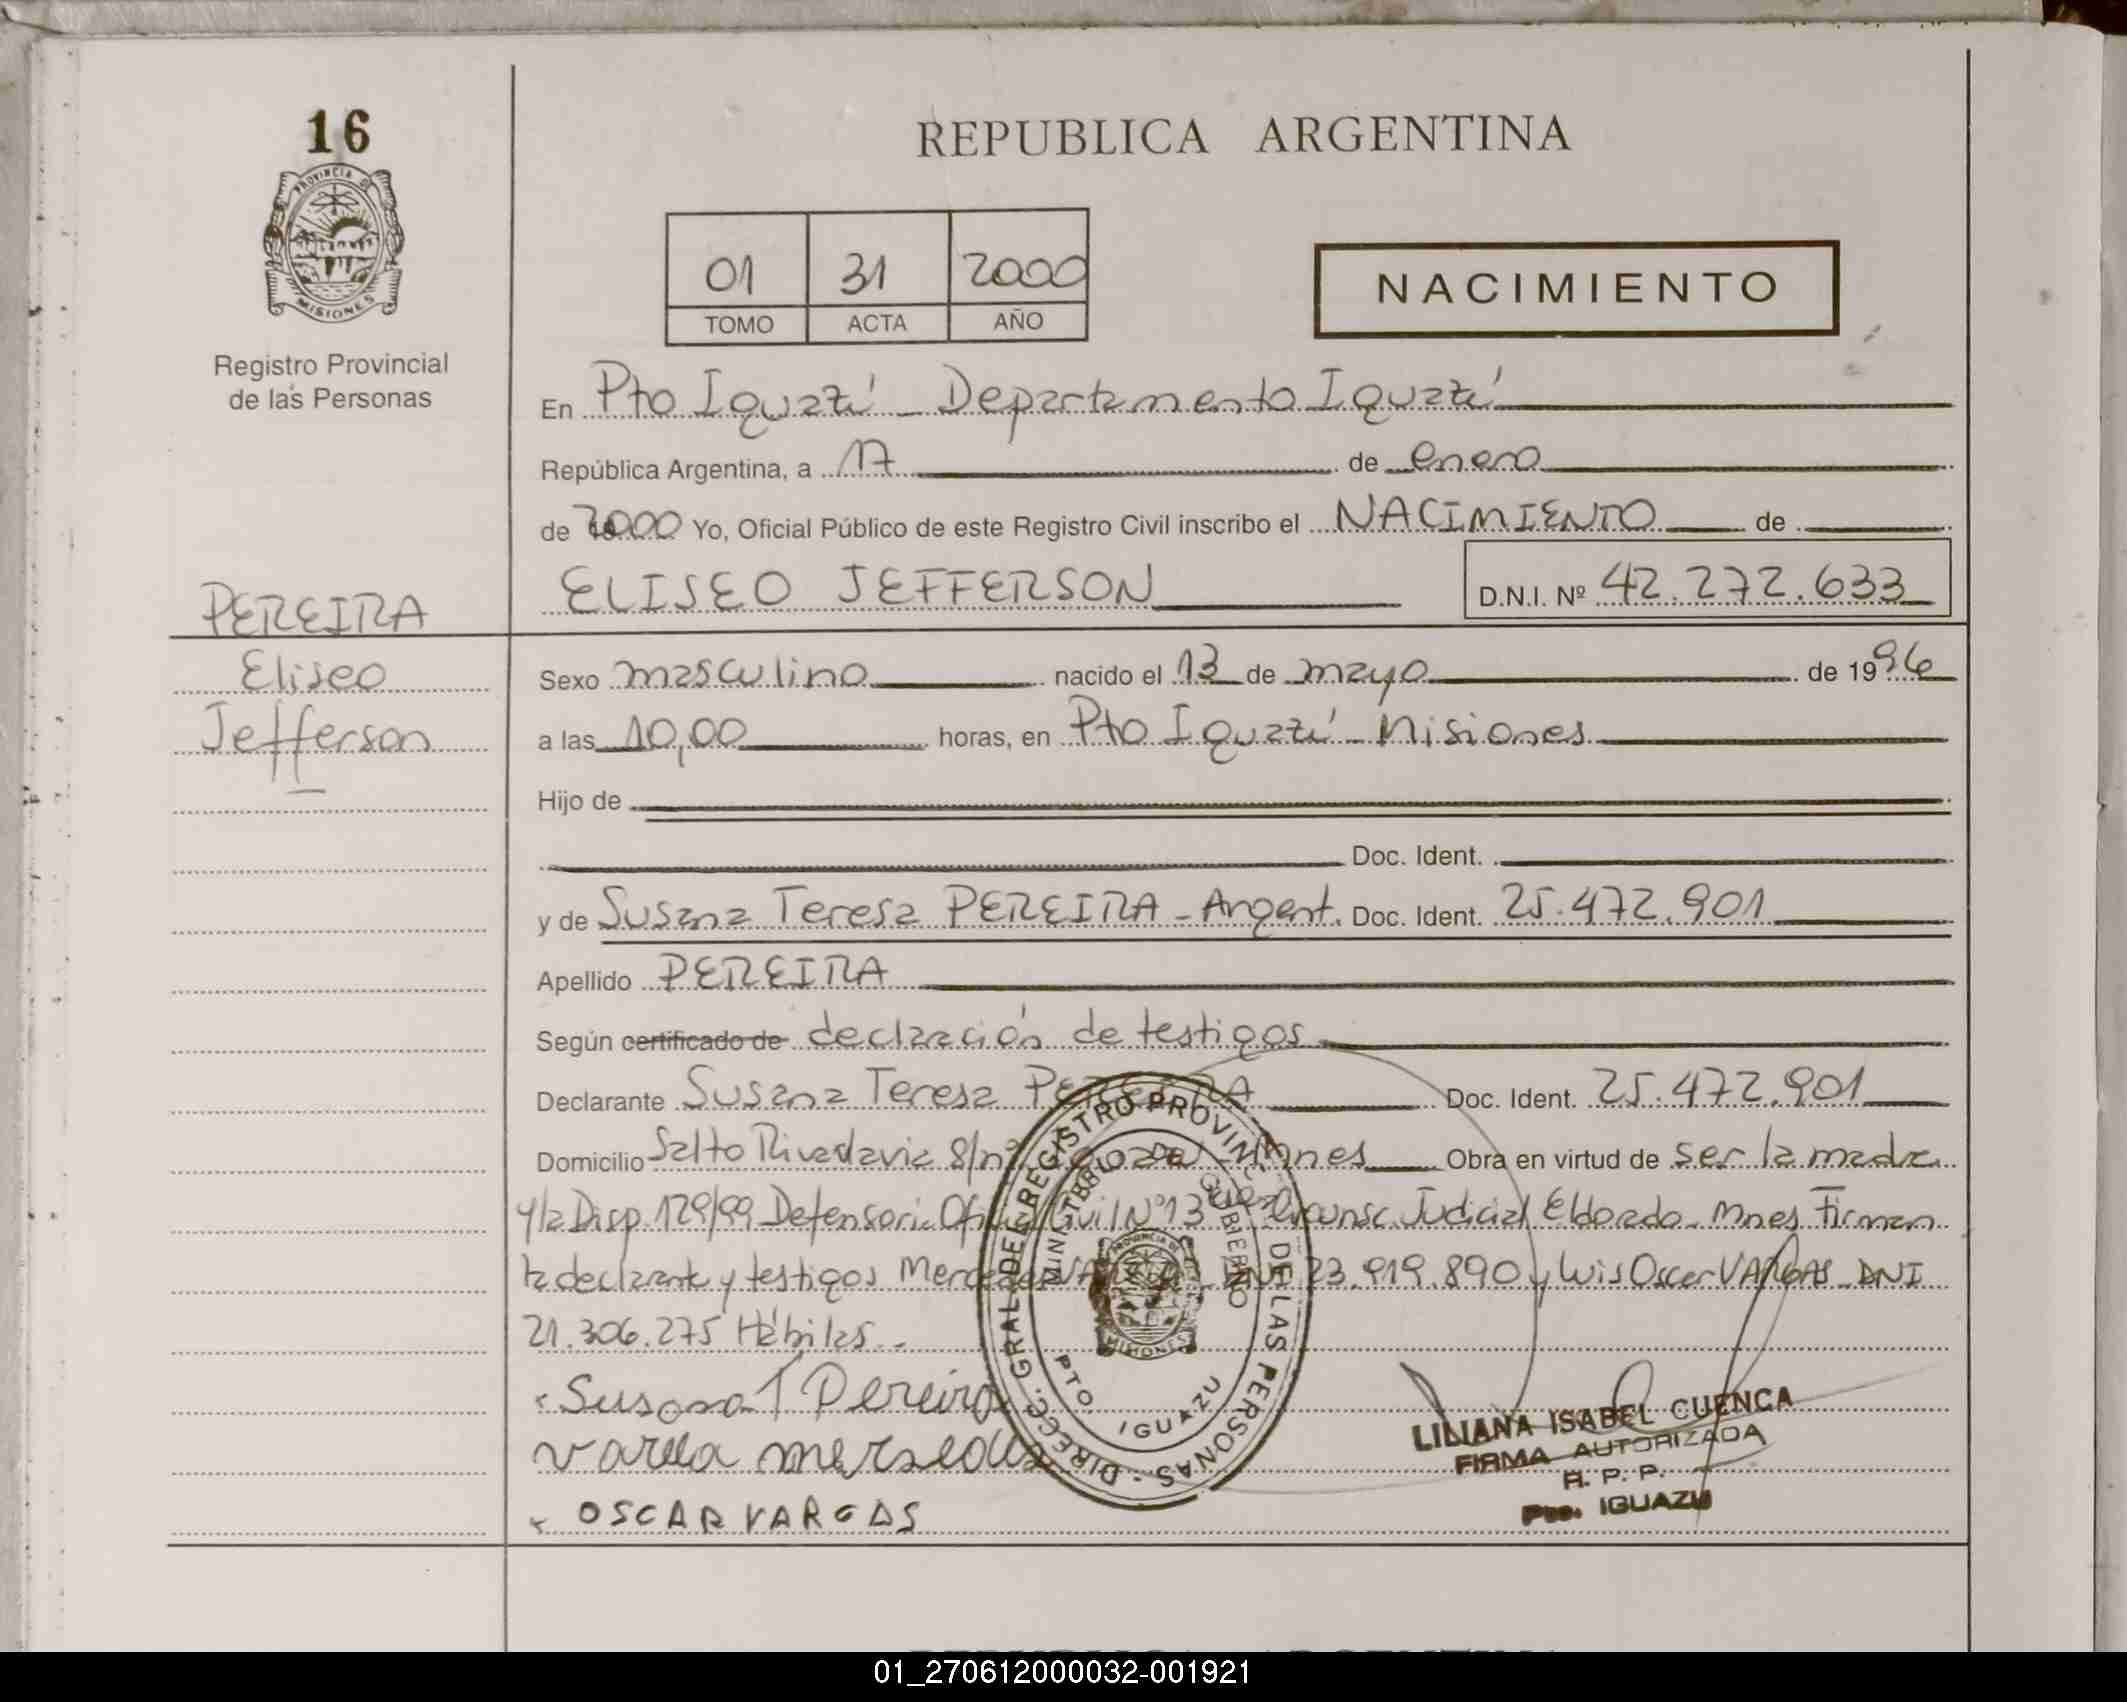 16
PROVINCIA DE
MISIONES
Registro Provincial
de las Personas
PEREIRA
Eliseo
Jefferson
REPUBLICA ARGENTINA
01 31 2000
TOMO ACTA AÑO
NACIMIENTO
En Pto Iguazú - Departamento Iguazú
República Argentina, a 17 de enero
de 2000 Yo, Oficial Público de este Registro Civil inscribo el NACIMIENTO de
ELISEO JEFFERSON D.N.I. Nº 42.272.633
Sexo masculino nacido el 13 de mayo de 1996
a las 10,00 horas, en Pto Iguazú - Misiones
Hijo de
Doc. Ident.
y de Susana Teresa PEREIRA - Argent. Doc. Ident. 25.472.901
Apellido PEREIRA
Según certificado de declaración de testigos
Declarante Susana Teresa PEREIRA Doc. Ident. 25.472.901
Domicilio Salto Rivadavia S/nº Mnes Obra en virtud de ser la madre
y/a Disp. 129/99 Defensoria Oficial Civil Nº 13 Circunsc. Judicial Eldorado - Mnes Firman
la declarante y testigos Mercedes DNI 23.919.890 y Luis Oscar VARGAS - DNI
21.306.275 Hábiles..
Susana T Pereira
OSCAR VARGAS
DIRECC. GRAL. DEL REGISTRO PROVINC. DE LAS PERSONAS
MINISTERIO DE GOBIERNO
PROVINCIA DE
MISIONES
PTO IGUAZU
LILIANA ISABEL CUENCA
FIRMA AUTORIZADA
R. P. P.
Pto. IGUAZU
01_270612000032-001921